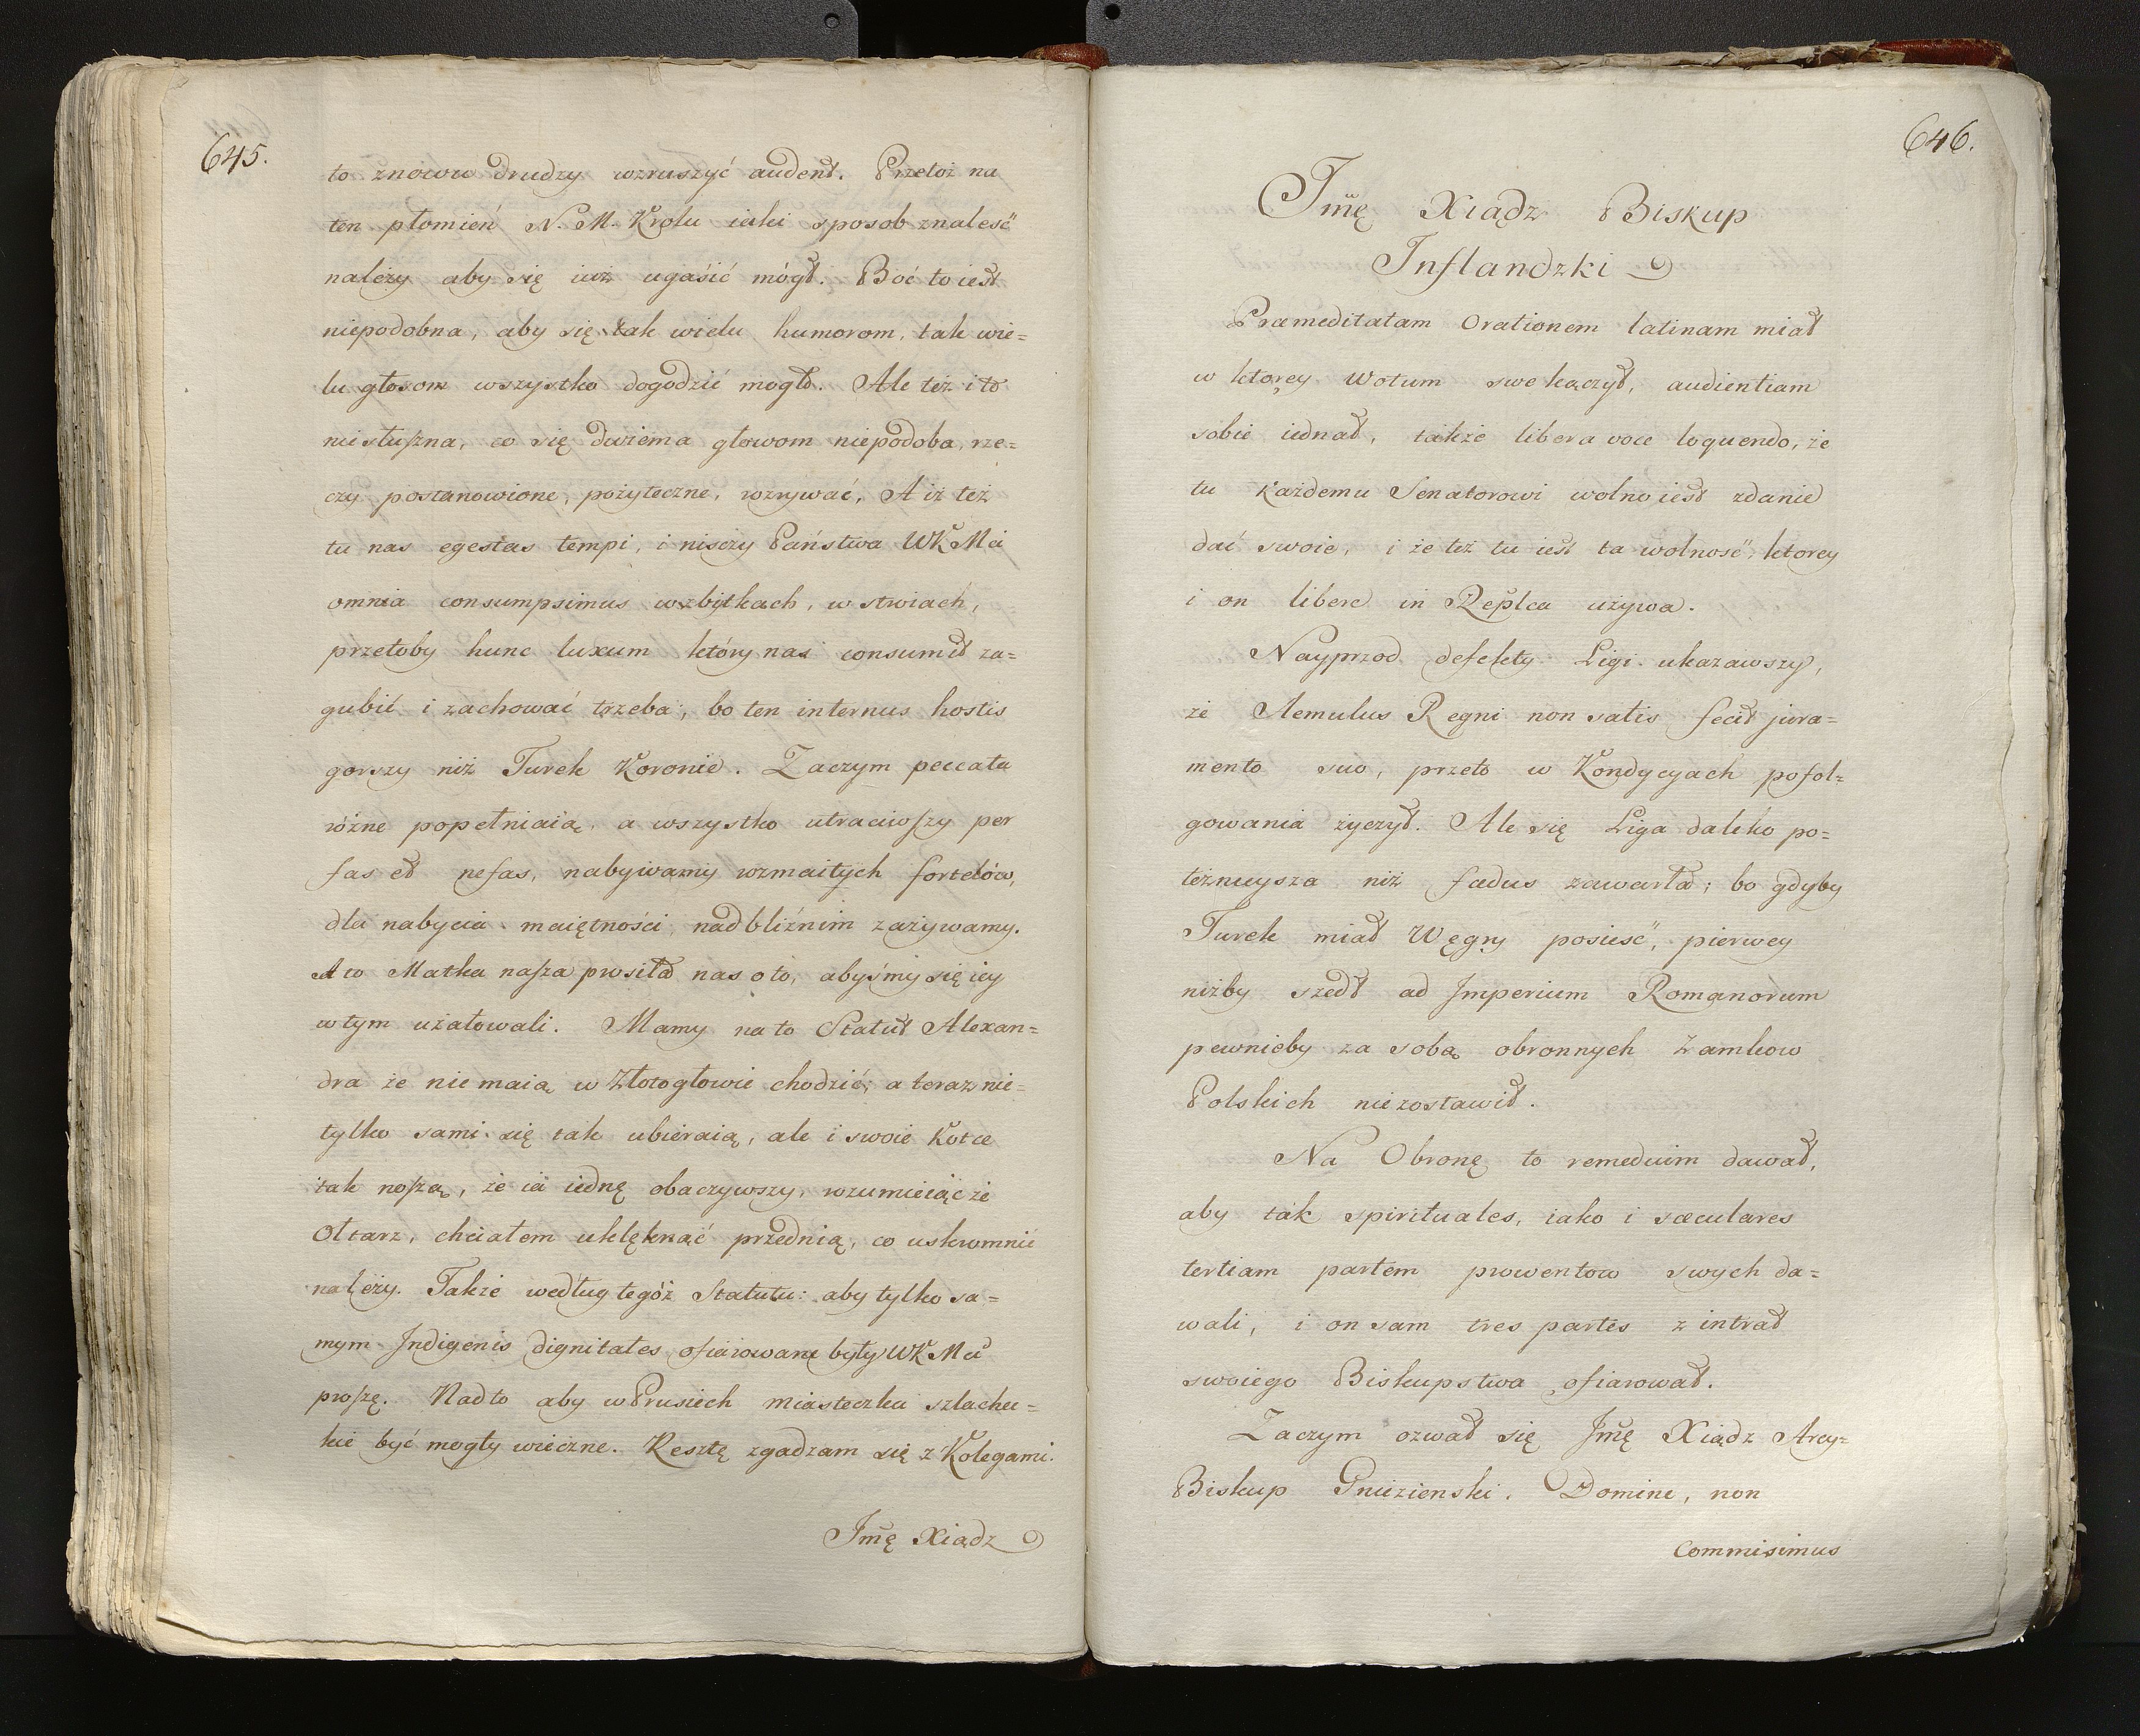 645.
to znowu drudzy wzruszyć audent. Przetoż na
ten płomień N. M. Krolu iaki sposob znaleść
należy aby się iuż ugaśić mógł. Boć to iest
niepodobna, aby się tak wielu humorom, tak wie=
lu głosom wszystko dogodzić mogło. Ale też i to
niesłuszna, co się dwiema głowom niepodoba, rze=
czy postanowione, pożyteczne, wzrywać, A iż też
tu nas egestas tempi, i nisczy Państwa WKMci
omnia consumpsimus w zbytkach, w stroiach,
przetoby hunc luxum który nas consumit za=
gubić i zachować trzeba, bo ten internus hostis
gorszy niż Turek Koronie. Zaczym peccata
różne popełniaią, a wszystko utraciwszy per
fas et nefas, nabywamy rozmaitych fortelów,
dla nabycia maiętności nad bliźnim zażywamy.
A to Matka nasza prosiła nas o to, abyśmy się iey
w tym użałowali. Mamy na to Statut Alexan=
dra że nie maią w Złotogłowie chodzić; a teraz nie=
tylko sami się tak ubieraią, ale i swoie Kotce
tak noszą, że ia iednę obaczywszy, rozumieiąc że
Oltarz, chciałem uklęknąć przed nią, co uskromnić
należy. Także według tegóż Statutu: aby tylko sa=
mym Indigenis dignitates ofiarowane były WKMci
proszę. Nadto aby w Prusiech miasteczka szlachec=
kie być mogły wieczne. Resztę zgadzam się z Kolegami.
Jmę Xiądz
646.
Jmę Xiądz Biskup
Inflandzki
Præmeditatam Orationem latinam miał
w ktorey wotum swe kączył, audientiam
sobie iednał, także libera voce loquendo, że
tu każdemu Senatorowi wolno iest zdanie
dać swoie, i że też tu iest ta wolność, ktorey
i on libere in Replca używa.
Nayprzod defekty Ligi ukazawszy,
że Aemulus Regni non satis fecit jura=
mento suo, przeto w Kondycyach pofol=
gowania życzył. Ale się Liga daleko po=
tężnieysza niż fœdus zawarła; bo gdyby
Turek miał Węgry posieść, pierwey
niżby szedł ad Imperium Romanorum
pewnieby za sobą obronnych Zamkow
Polskich niezostawił.
Na Obronę to remedium dawał,
aby tak spirituales, iako i sæculares
tertiam partem prowentow swych da=
wali, i on sam tres partes z intrat
swoiego Biskupstwa ofiarował.
Zaczym ozwał się Jmę Xiądz Arcy=
Biskup Gnieznienski. Domine, non
Commisimus